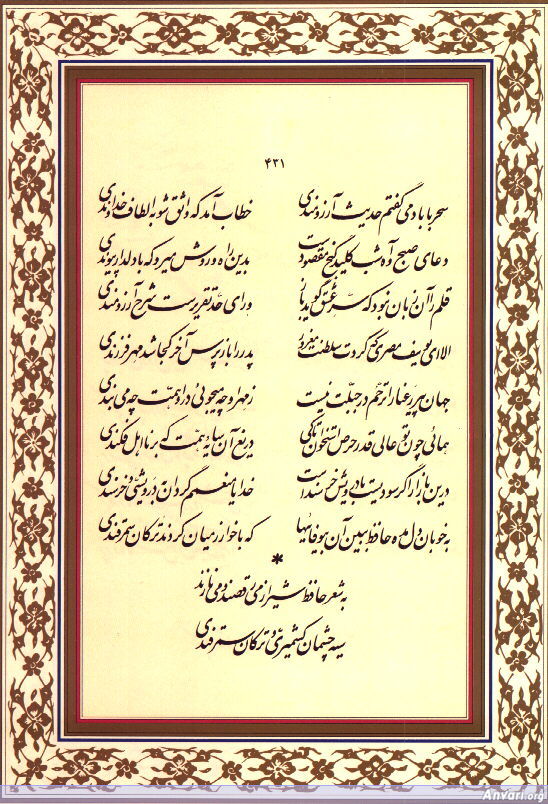 ۴۳۱
سحر با باد می گفتم حدیث آرزومندی خطاب آمد که واثق شو به الطاف خداوندی
دعای صبح و آه شب کلید گنج مقصودست بدین راه و روش میرو که با دلدار پیوندی
قلم را آن زبان نبود که سر عشق گوید باز ورای حد تقریرست شرح آرزومندی
الا ای یوسف مصری که کردت سلطنت مغرور پدر را باز پرس آخر کجا شد مهر فرزندی
جهان پیر رعنا را ترحم در جبلت نیست ز مهر او چه میجوئی در او همت چه می بندی
همائی چون تو عالی قدر حرص استخوان تا کی دریغ آن سایه همت که بر نااهل افکندی
درین بازار اگر سودیست با درویش خرسندست خدایا منعمم گردان به درویشی و خرسندی
به خوبان دل مده حافظ ببین آن بیوفائیها که با خوارزمیان کردند ترکان سمرقندی
*
به شعر حافظ شیراز می رقصند و می نازند
سیه چشمان کشمیری و ترکان سمرقندی
AnVari.org